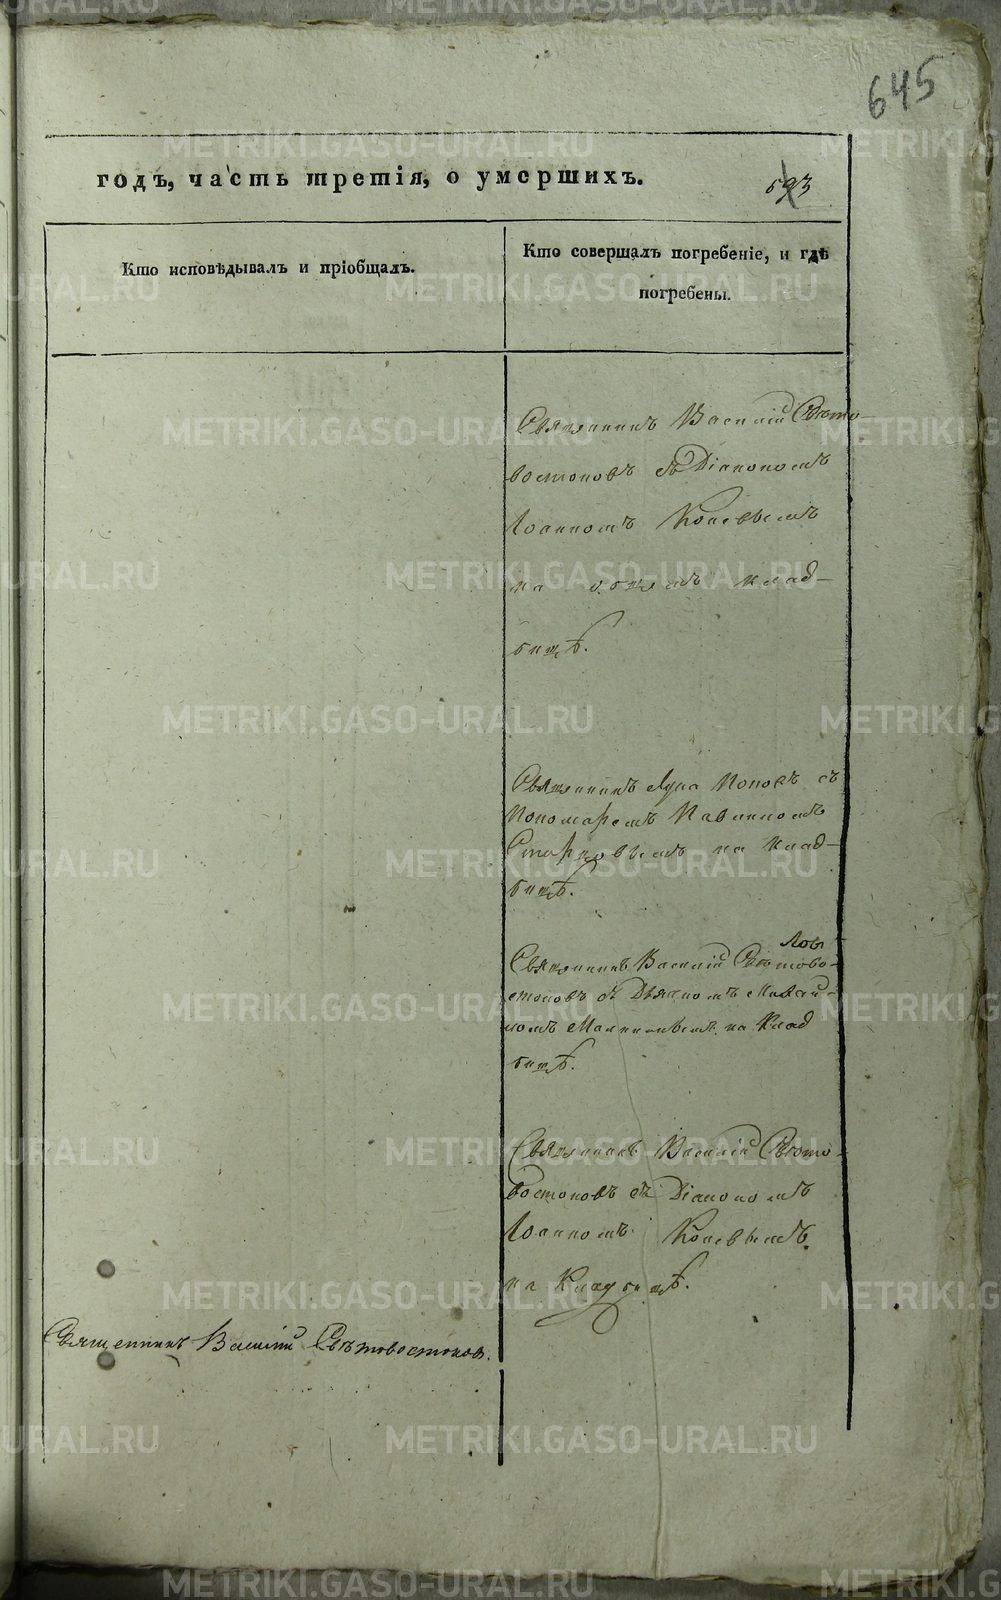 645
годъ, часть третія, о умершихъ.
593
Кто исповѣдывалъ и пріобщалъ.
Кто совершалъ погребеніе, и гдѣ
погребены.
Священникъ Василій Свѣто-
востоковъ съ Діакономъ
Іоанномъ Коневымъ
на общемъ клад-
бищѣ.
Священникъ Лука Поповъ съ
Пономаремъ Павлиномъ
на клад-
бищѣ.
Священникъ Василій Свѣтово-
стоковъ съ Дьячкомъ Михаи-
ломъ на Клад
бищѣ.
Священникъ Василій Свѣто-
востоковъ съ Діакономъ
Іоанномъ Коневымъ.
на Кладбищѣ.
Священникъ Василій Свѣтовостоковъ.
METRIKI.GASO-URAL.RU